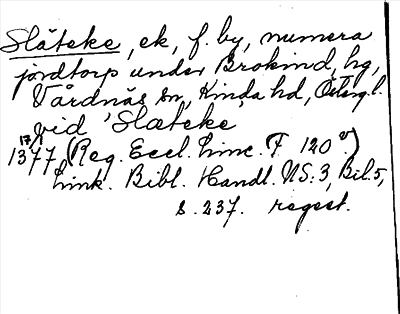 Slåteke, ek, f. by, numera
jordtorp under Brokind, hg,
Vårdnäs sn, Kinda hd, Östergl.
vid Slæteke
1377 17/7 (Reg. Eccl. Linc. F 120 v.)
Link. Bibl. Handl. NS: 3, Bil. 5,
s. 237. regest.